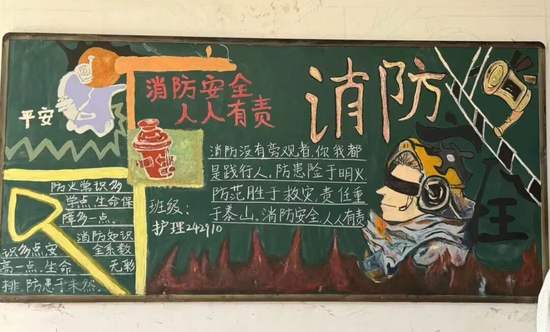 消防安全
人人有责
消防
安全
平安
消防没有旁观者,你我都
是践行人,防患险于明火
防范胜于救灾,责任重
于泰山,消防安全人人有责
班级:
护理242910
防火常识多
学点,生命保
障多一点。
消防知识
识多点,安全系数
高一点,生命无彩
排,防患于未然。